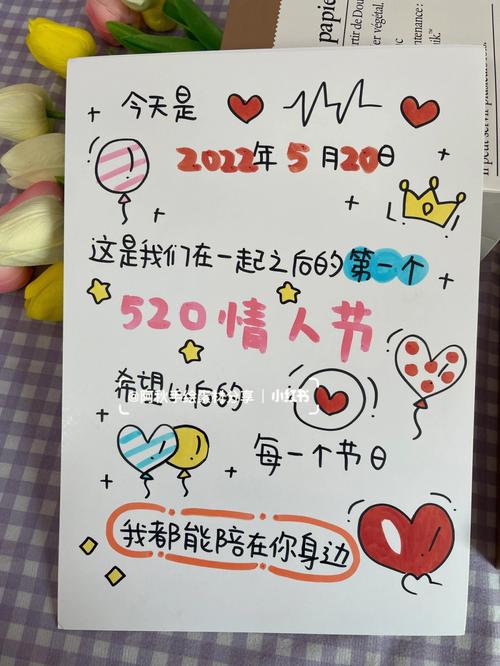 今天是
2022年5月20日
这是我们在一起之后的第一个
520情人节
希望以后的
每一个节日
我都能陪在你身边
小红书